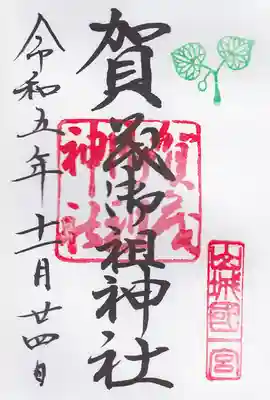 山城國一宮
賀茂御祖神社
賀茂
御祖
神社
令和五年十一月廿四日